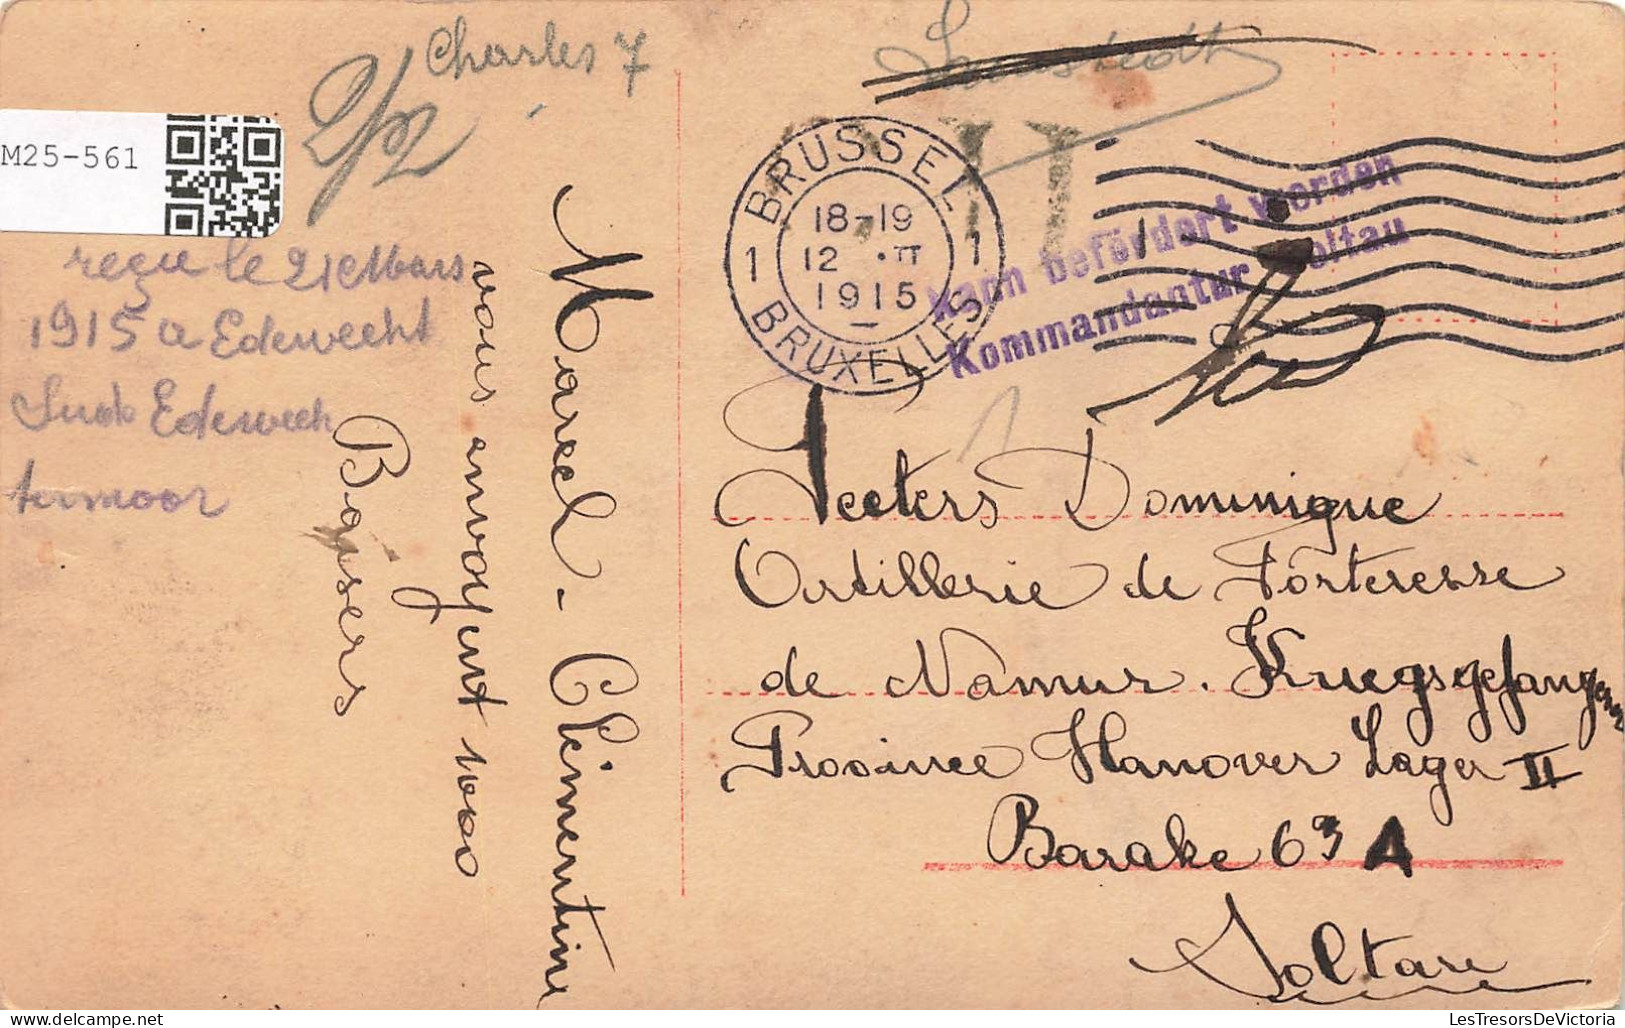 Charles 7
M25-561
reçu le 21 Mars
1915 a Edewecht
Sud Edewech
termoor
Marcel - Clémentine
vous envoyent 1000
Baisers
BRUSSEL
1 18-19 1
12 · II
1915
BRUXELLES
Kann befördert worden
Kommandantur Soltau
Peeters Dominique
Artillerie de Forteresse
de Namur. Kriegsgefangen
Province Hanover Lager II
Barake 63 A
Soltau
LesTresorsDeVictoria.com